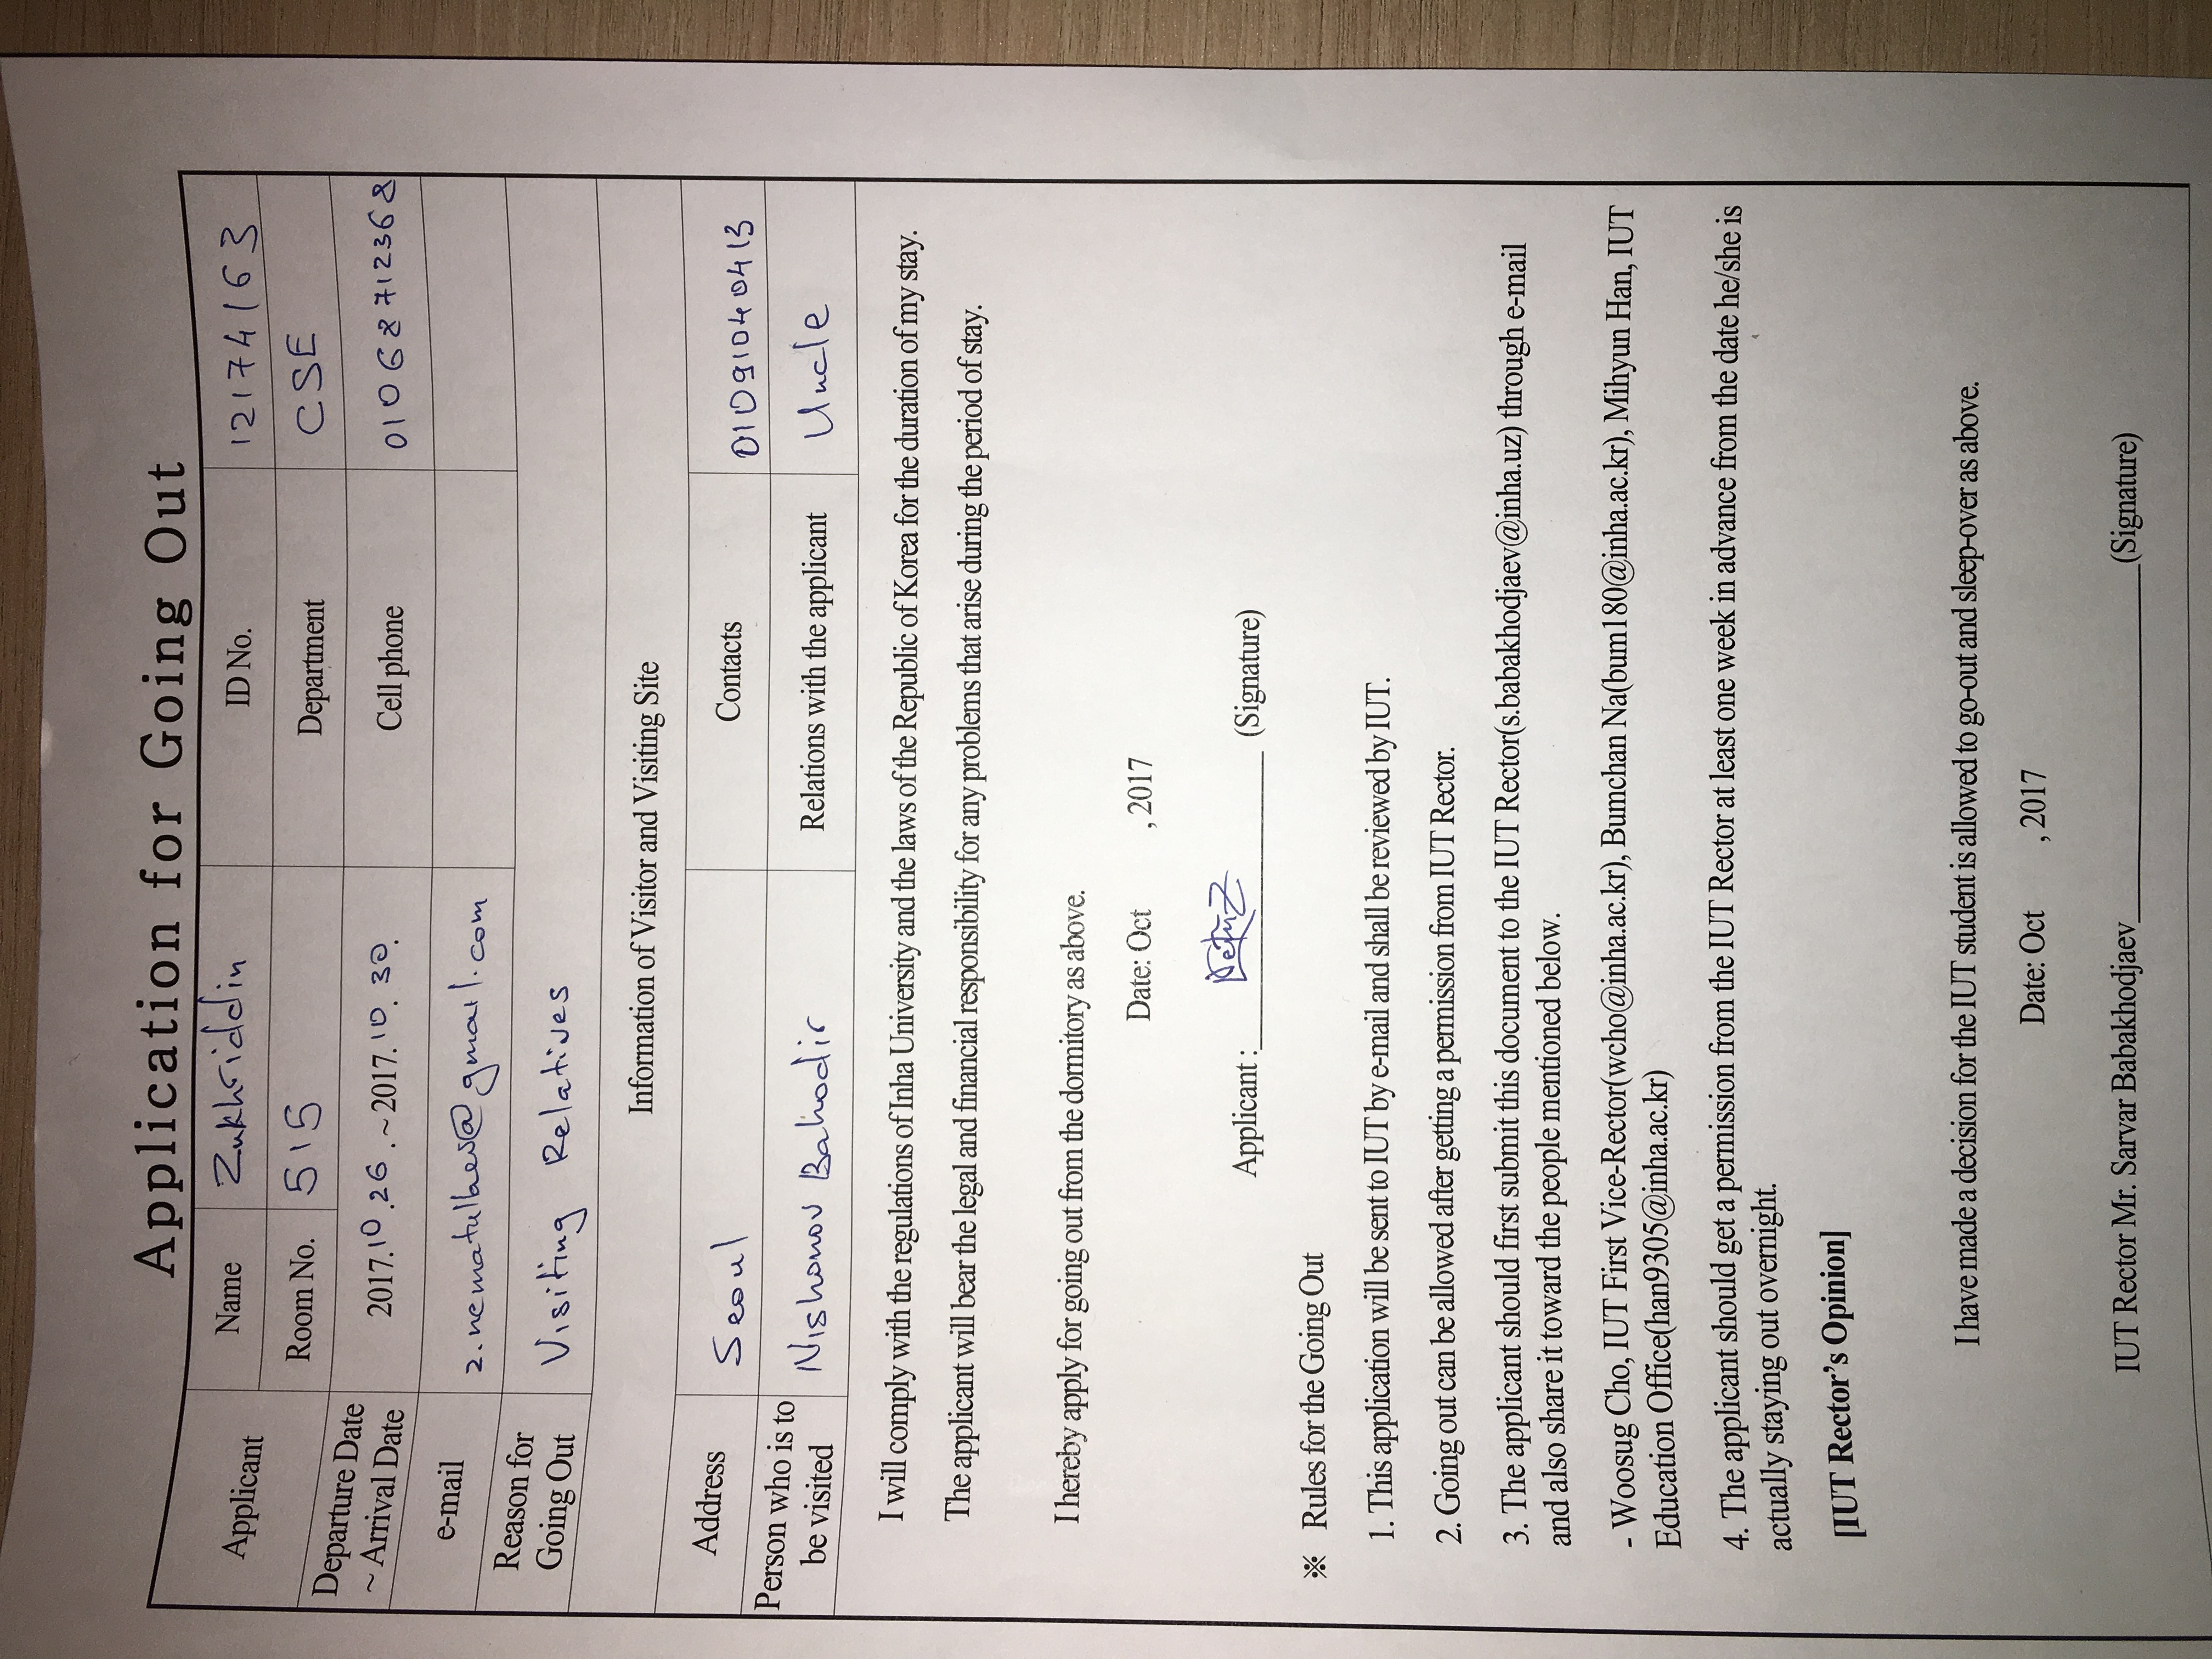 Application for Going Out
Applicant Name Zukhriddin ID No. 12174163
Room No. 515 Department CSE
Departure Date
~ Arrival Date 2017.10.26.~2017.10.30. Cell phone 01068712368
e-mail z.nematulbaev@gmail.com
Reason for
Going Out Visiting Relatives
Information of Visitor and Visiting Site
Address Seoul Contacts 01091040413
Person who is to
be visited Nishonov Bahodir Relations with the applicant Uncle
I will comply with the regulations of Inha University and the laws of the Republic of Korea for the duration of my stay.
The applicant will bear the legal and financial responsibility for any problems that arise during the period of stay.
I hereby apply for going out from the dormitory as above.
Date: Oct , 2017
Applicant : (Signature)
※ Rules for the Going Out
1. This application will be sent to IUT by e-mail and shall be reviewed by IUT.
2. Going out can be allowed after getting a permission from IUT Rector.
3. The applicant should first submit this document to the IUT Rector(s.babakhodjaev@inha.uz) through e-mail
and also share it toward the people mentioned below.
- Woosug Cho, IUT First Vice-Rector(wcho@inha.ac.kr), Bumchan Na(bum180@inha.ac.kr), Mihyun Han, IUT
Education Office(han9305@inha.ac.kr)
4. The applicant should get a permission from the IUT Rector at least one week in advance from the date he/she is
actually staying out overnight.
[IUT Rector's Opinion]
I have made a decision for the IUT student is allowed to go-out and sleep-over as above.
Date: Oct , 2017
IUT Rector Mr. Sarvar Babakhodjaev (Signature)